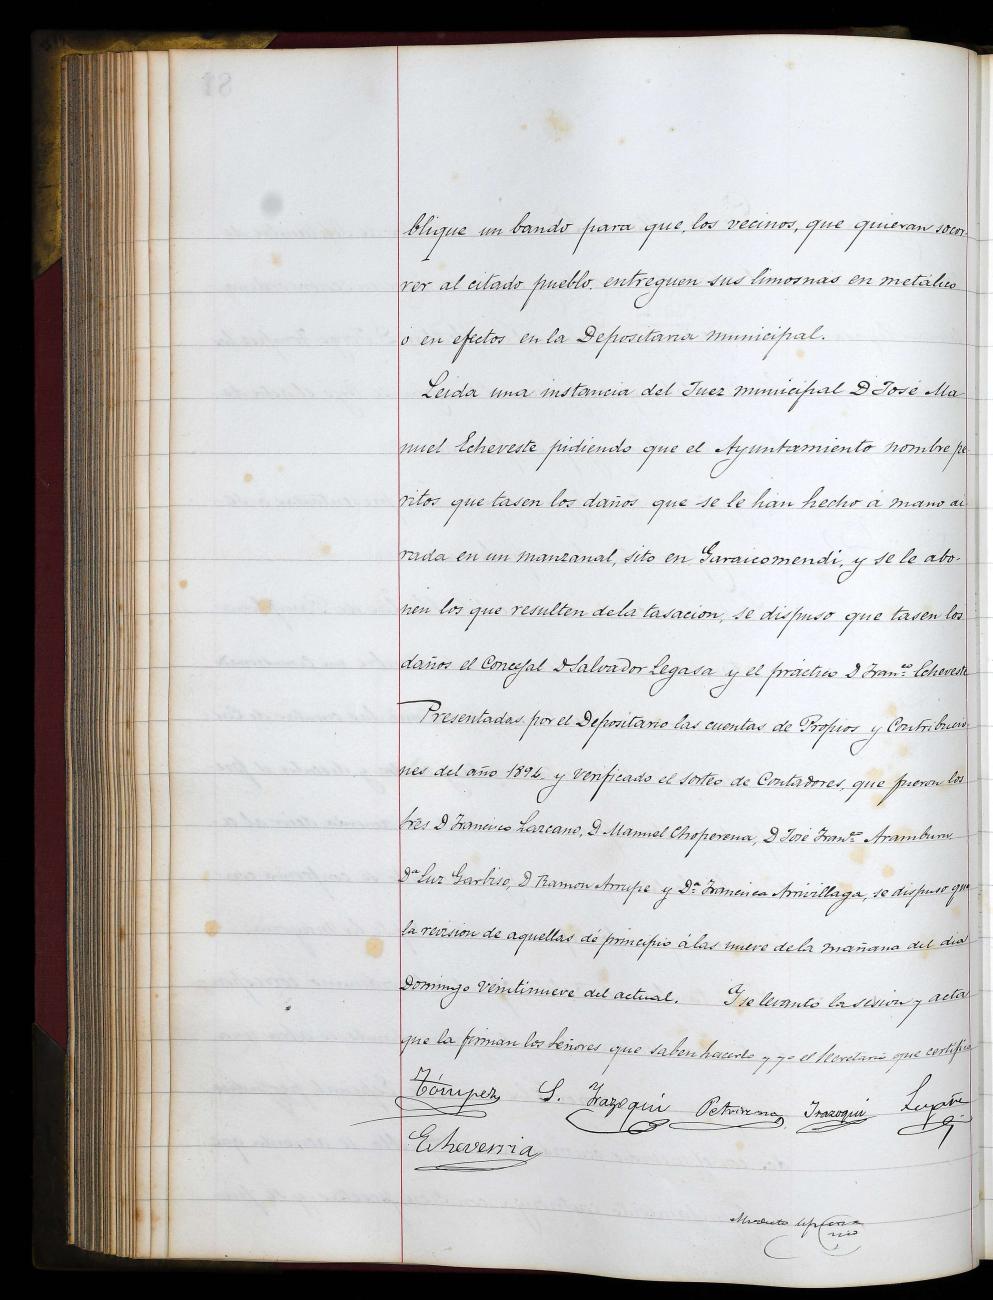 blique un bando para que, los vecinos, que quieran socor-
rer al citado pueblo. entreguen sus limosnas en metálico
ó en efectos en la Depositaria municipal.
Leida una instancia del Juez municipal D José Ma-
nuel Echeveste pidiendo que el Ayuntamiento nombre pe-
ritos que tasen los daños que se le han hecho á mano ai-
rada en un manzanal, sito en Garaicomendi, y se le abo-
nen los que resulten de la tasacion, se dispuso que tasen los
daños el Concejal D Salvador Legasa y el práctico D Franco Echeveste
Presentadas por el Depositario las cuentas de Propios y Contribucio-
nes del año 1892, y verificado el sorteo de Contadores, que fueron los
tres D Francisco Lazcano, D Manuel Choperena, D José Franco Aramburu,
Da Luz Garbiso, D Ramon Arrupe y Da Francisca Arrivillaga, se dispuso que
la revision de aquellas dé principio á las nueve de la mañana del dia
Domingo veintinueve del actual. Y se levantó la sesion y acta
que la firman los Señores que saben hacerlo y yo el Secretario que certifico
S. Irazoqui Petrirena Irazoqui
Echeverria
81